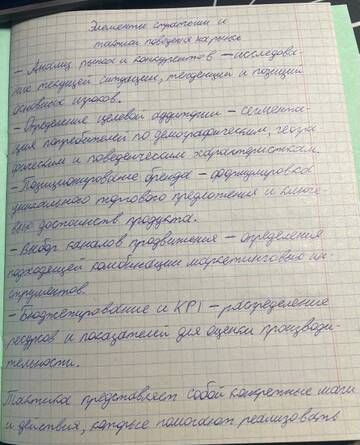 Элементы стратегии и
тактики поведения на рынке
– Анализ рынка и конкурентов – исследова-
ние текущей ситуации, тенденций и позиций
основных игроков.
– Определение целевой аудитории – сегмента-
ция потребителей по демографическим, геогра
фическим и поведенческим характеристикам.
– Позиционирование бренда – формулировка
уникального торгового предложения и ключе-
вых достоинств продукта.
– Выбор каналов продвижения – определения
подходящей комбинации маркетинговых ин-
струментов.
– Бюджетирование и KPI – распределение
ресурсов и показателей для оценки производи-
тельности.
Тактика представляет собой конкретные шаги
и действия, которые помогают реализовать